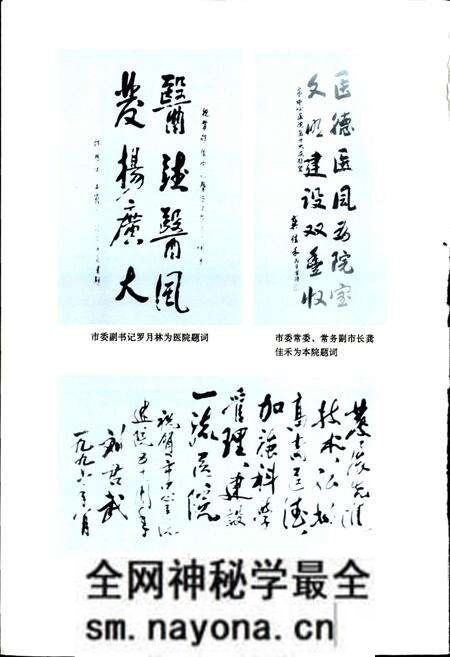 醫德醫風
發揚廣大
市委副书记罗月林为医院题词
医德医风为院宝
文明建设双豐收
龚佳禾
市委常委、常务副市长龚
佳禾为本院题词
技术、弘扬
高尚医德、
加强科学
管理、建设
一流医院
祝贺市中心医院
建院五十周年
刘君武
一九九六年八月
全网神秘学最全
sm.nayona.cn